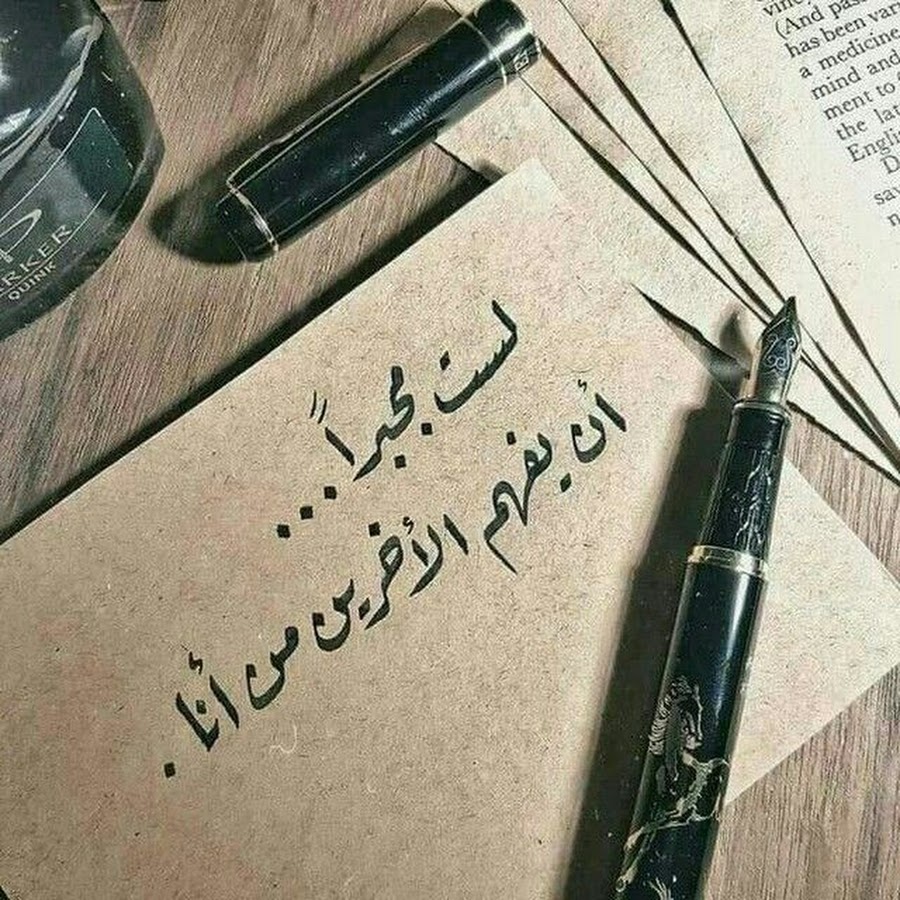 لست مجبراً...
أن يفهم الأخرين من أنا.
PARKER
QUINK
(And pas
has been var
a medicine
mind and
ment to
the la
Engli
D
sa